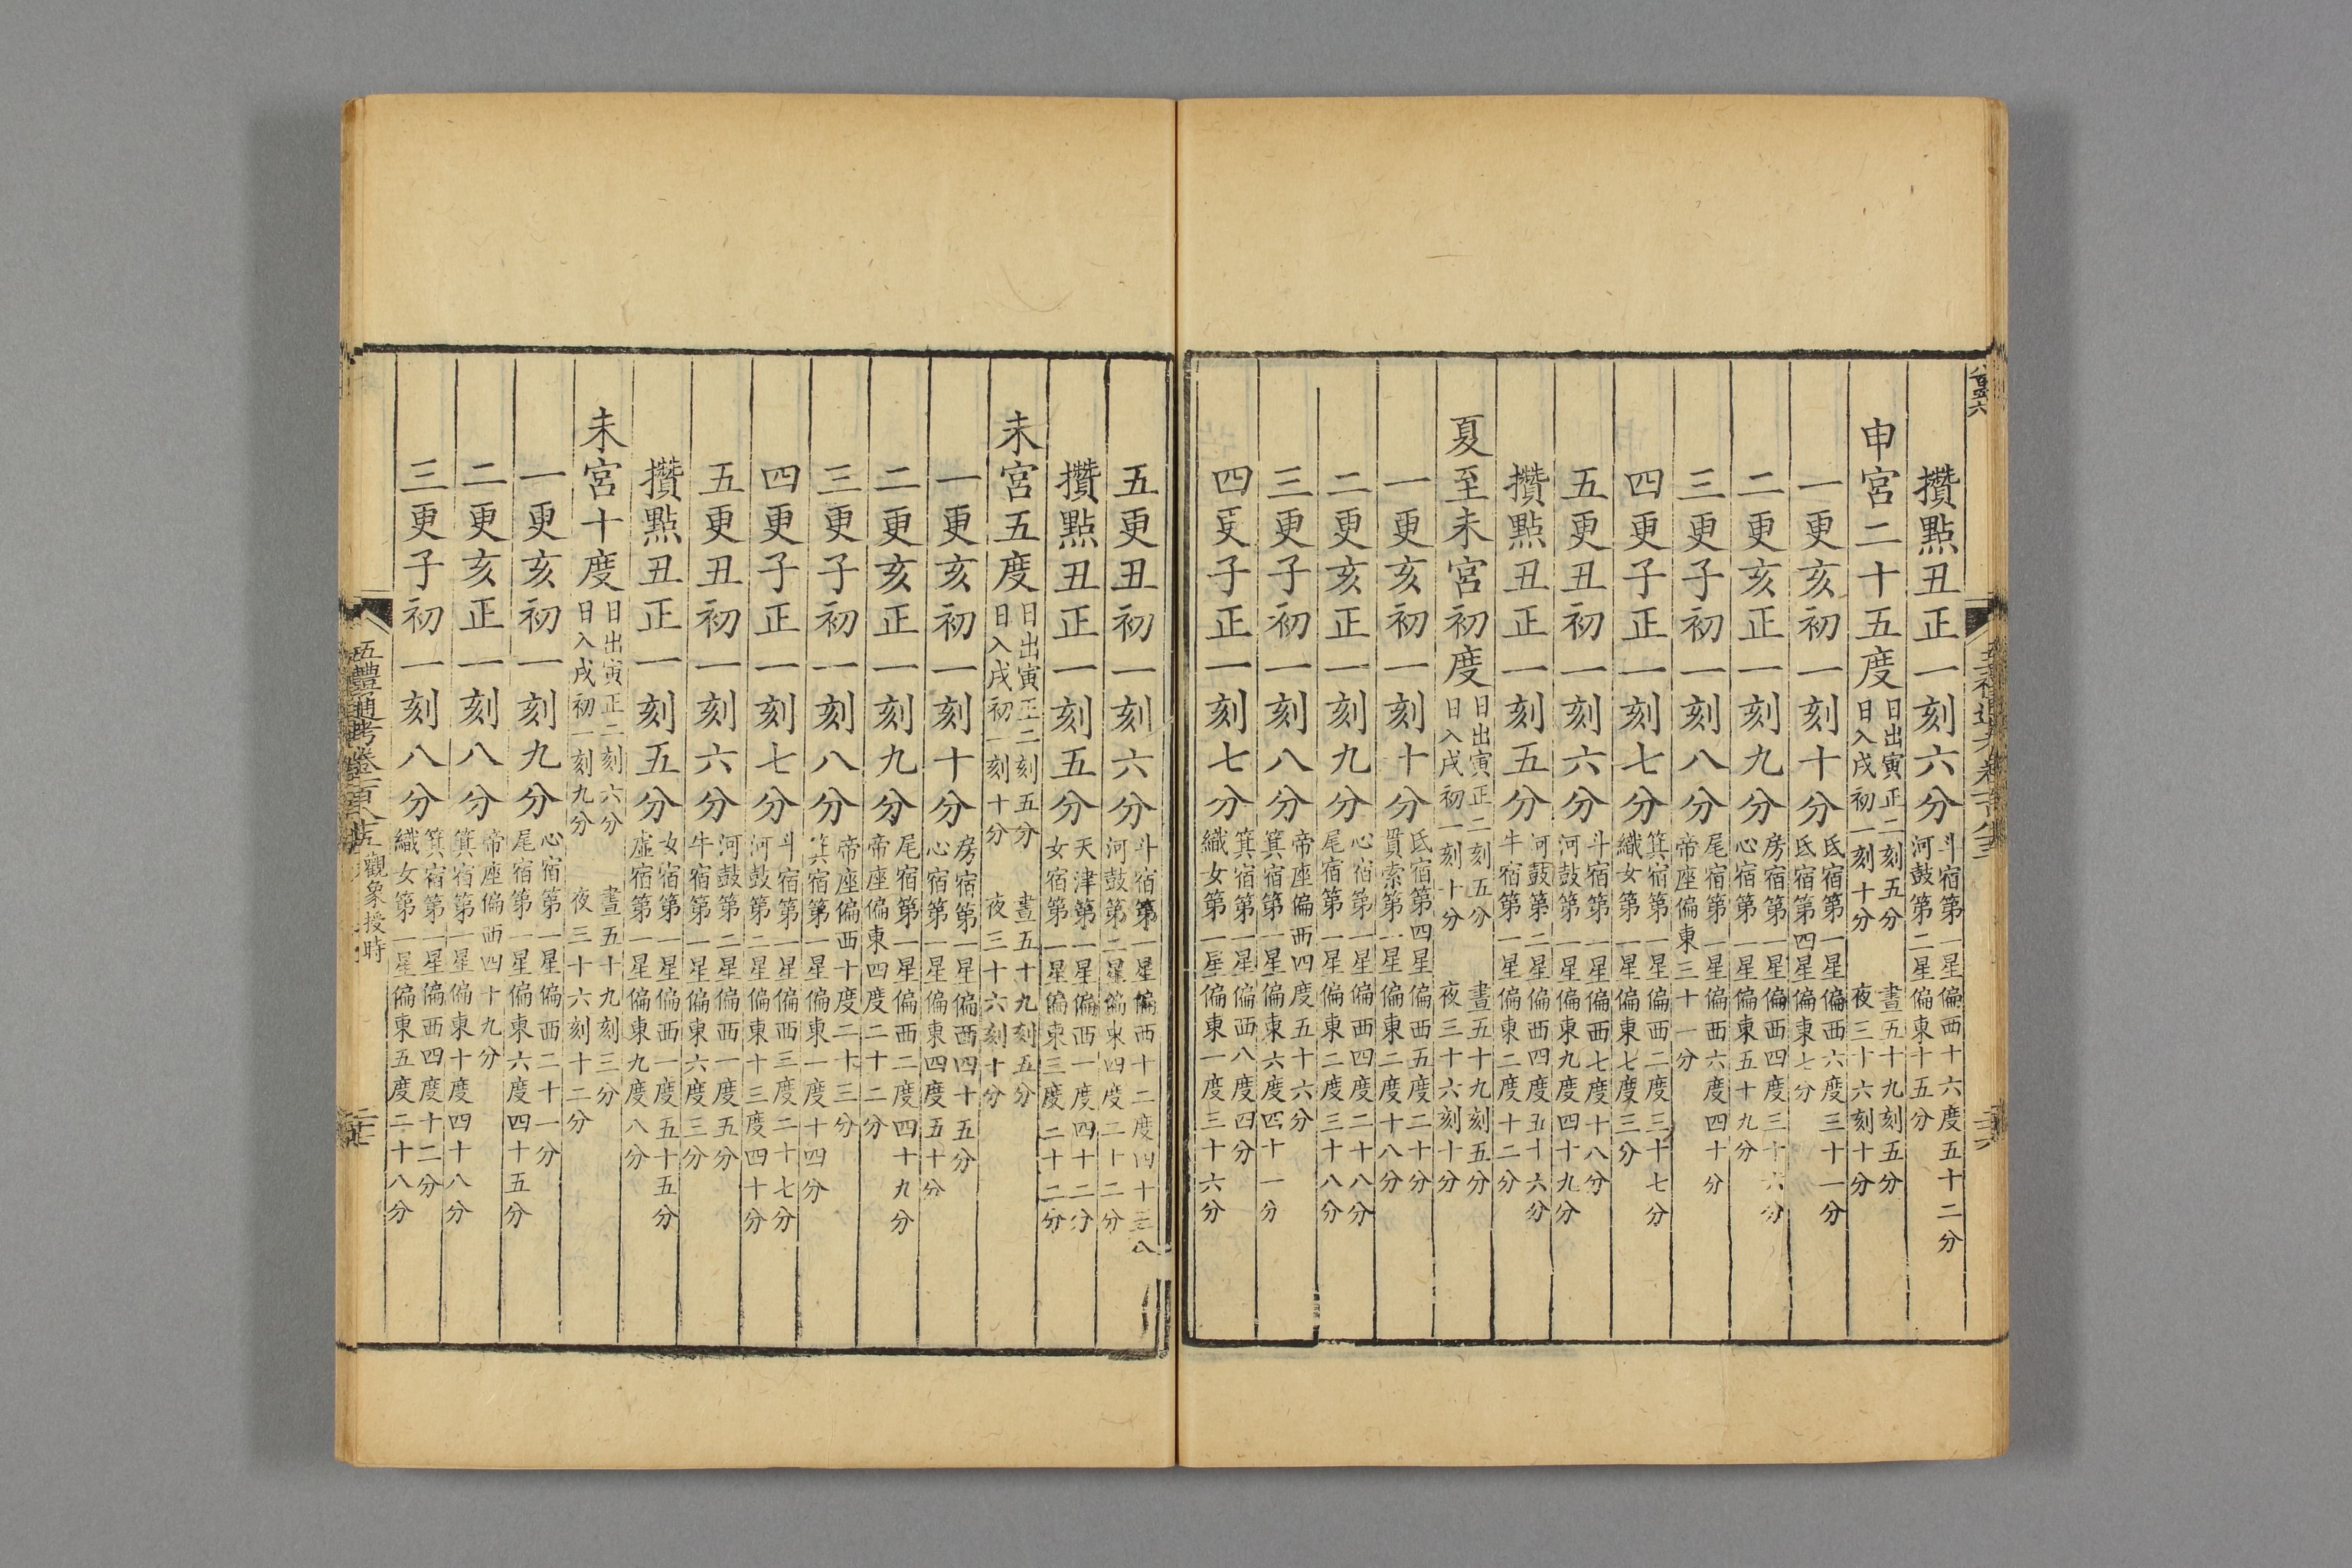 攢點丑正一刻六分斗宿第一星偏西十六度五十二分河鼓第二星偏東十五分
申宮二十五度日出寅正二刻五分晝五十九刻五分日入戌初一刻十分夜三十六刻十分
一更亥初一刻十分氐宿第一星偏西六度三十一分氐宿第四星偏東七分
二更亥正一刻九分房宿第一星偏西四度三十六分心宿第一星偏東五十九分
三更子初一刻八分尾宿第一星偏西六度四十分帝座偏東三十一分
四更子正一刻七分箕宿第一星偏西二度三十七分織女第一星偏東七度三分
五更丑初一刻六分斗宿第一星偏西七度十八分河鼓第二星偏東九度四十九分
攢點丑正一刻五分河鼓第二星偏西四度五十六分牛宿第一星偏東二度十二分
夏至未宮初度日出寅正二刻五分晝五十九刻五分日入戌初一刻十分夜三十六刻十分
一更亥初一刻十分氐宿第四星偏西五度二十分貫索第一星偏東二度十八分
二更亥正一刻九分心宿第一星偏西四度二十八分尾宿第一星偏東二度三十八分
三更子初一刻八分帝座偏西四度五十六分箕宿第一星偏東六度四十一分
四更子正一刻七分箕宿第一星偏西八度四分織女第一星偏東一度三十六分
五更丑初一刻六分斗宿第一星偏西十二度四十河鼓第二星偏東四度二十二分
攢點丑正一刻五分天津第一星偏西一度四十二分女宿第一星偏東三度二十二分
未宮五度日出寅正二刻五分晝五十九刻五分日入戌初一刻十分夜三十六刻十分
一更亥初一刻十分房宿第一星偏西四十五分心宿第一星偏東四度五十分
二更亥正一刻九分尾宿第一星偏西二度四十九分帝座偏東四度二十二分
三更子初一刻八分帝座偏西十度二十三分箕宿第一星偏東一度十四分
四更子正一刻七分斗宿第一星偏西三度二十七分河鼓第二星偏東十三度四十分
五更丑初一刻六分河鼓第二星偏西一度五分牛宿第一星偏東六度三分
攢點丑正一刻五分女宿第一星偏西一度五十五分虛宿第一星偏東九度八分
未宮十度日出寅正二刻六分晝五十九刻三分日入戌初一刻九分夜三十六刻十二分
一更亥初一刻九分心宿第一星偏西二十一分尾宿第一星偏東六度四十五分
二更亥正一刻八分帝座偏西四十九分箕宿第一星偏東十度四十八分
三更子初一刻八分箕宿第一星偏西四度十二分織女第一星偏東五度二十八分
五禮通考卷一百八十五觀象授時